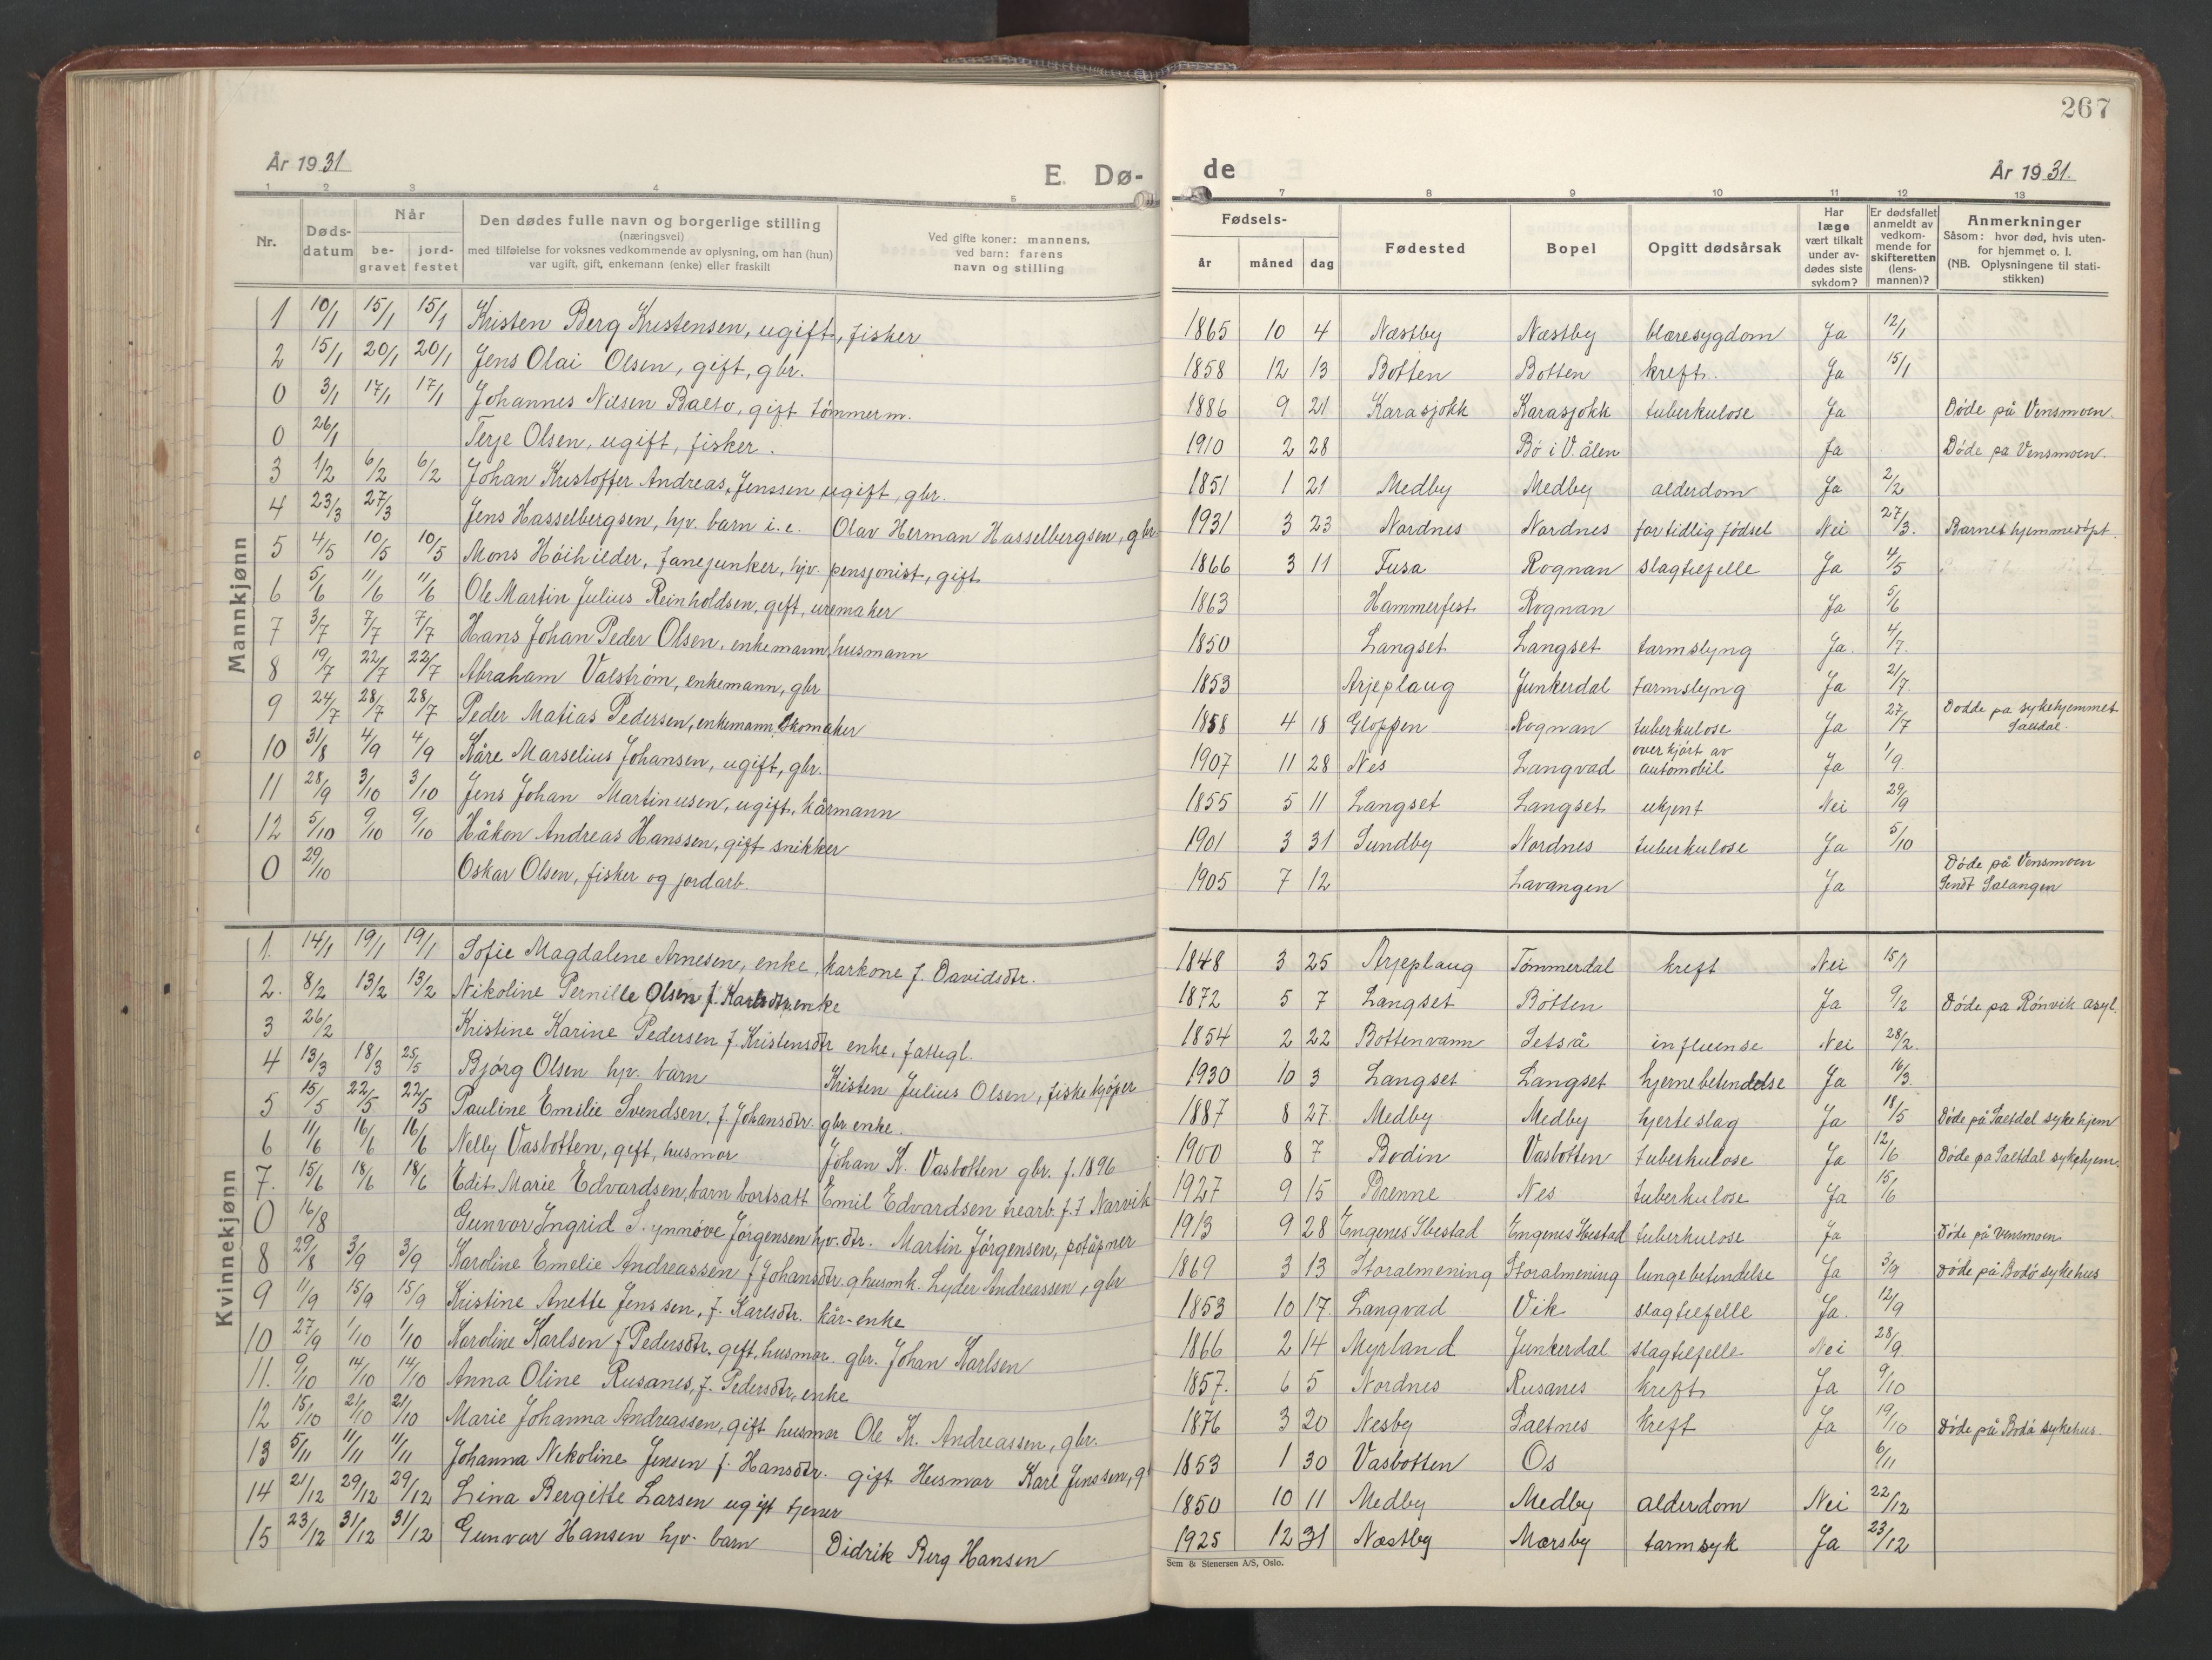 267
År 1931
E. Dø-
de
År 1931.
1 2 3 4 5 7 8 9 10 11 12 13
Nr.
Døds-datum
Når
be-gravet
jord-festet
Den dødes fulle navn og borgerlige stilling
(næringsvei)
med tilføielse for voksnes vedkommende av oplysning, om han (hun)
var ugift, gift, enkemann (enke) eller fraskilt
Ved gifte koner: mannens,
ved barn: farens
navn og stilling
Fødsels-
år måned dag
Fødested
Bopel
Opgitt dødsårsak
Har læge vært tilkalt under av-dødes siste sykdom?
Er dødsfallet anmeldt av vedkom-mende for skifteretten (lens-mannen)?
Anmerkninger
Såsom: hvor død, hvis uten-
for hjemmet o. l.
(NB. Oplysningene til stati-
stikken)
Mannkjønn
1 10/1 15/1 15/1 Kristen Berg Kristensen, ugift, fisker 1865 10 4 Næstby Næstby blæresygdom Ja 12/1
2 15/1 20/1 20/1 Jens Olai Olsen, gift, gbr. 1858 12 13 Botten Botten kreft. Ja 15/1
0 3/1 17/1 17/1 Johannes Nilsen Balto, gift tømmerm. 1886 9 21 Karasjokk Karasjokk tuberkulose Ja Døde på Vensmoen.
0 26/1 Terje Olsen, ugift, fisker. 1910 2 28 Bø i V.ålen Ja Døde på Vensmoen.
3 1/2 6/2 6/2 Johan Kristoffer Andreas Jenssen ugift, gbr. 1851 1 21 Medby Medby alderdom Ja 2/2
4 23/3 27/3 Jens Hasselbergsen, hjv. barn i.e. Olav Herman Hasselbergsen, gbr. 1931 3 23 Nordnes Nordnes for tidlig fødsel Nei 27/3. Barnet hjemmedøpt.
5 4/5 10/5 10/5 Mons Høihilder, fanejunker, hjv. pensjonist, gift 1866 3 11 Fusa Rognan slagtilfelle Ja 4/5
6 5/6 11/6 11/6 Ole Martin Julius Reinholdsen, gift, urmaker 1863 Hammerfest Rognan Ja 5/6
7 3/7 7/7 7/7 Hans Johan Peder Olsen, enkemann, husmann 1850 Langset Langset tarmslyng Ja. 4/7.
8 19/7 22/7 22/7 Abraham Valstrøm, enkemann, gbr 1853 Arjeplaug Junkerdal tarmslyng Ja 21/7.
9 24/7 28/7 28/7 Peder Matias Pedersen, enkemann, skomaker 1858 4 18 Gloppen Rognan tuberkulose Ja 27/7 Dødde på sykehjemmet Saltdal.
10 31/8 4/9 4/9 Kåre Marselius Johansen, ugift, gbr. 1907 11 28 Nes Langvad overkjørt av automobil Ja 1/9.
11 28/9 3/10 3/10 Jens Johan Martinusen, ugift, kårmann 1855 5 11 Langset Langset ukjent Nei 29/9
12 5/10 9/10 9/10 Håkon Andreas Hanssen, gift snikker 1901 3 31 Sundby Nordnes tuberkulose Ja 5/10
0 29/10 Oskar Olsen, fisker og jordarb. 1905 7 12 Lavangen Ja Døde på Vensmoen Sendt Salangen
Kvinnekjønn
1. 14/1 19/1 19/1 Sofie Magdalene Arnesen, enke, karkone f. Davidsdtr. 1848 3 25 Arjeplaug Tømmerdal kreft Nei 15/1
2. 8/2 13/2 13/2 Nikoline Pernille Olsen f. Karlsdtr, enke 1872 5 7 Langset Botten Ja 9/2 Døde på Rønvik asyl.
3 26/2 Kristine Karine Pedersen f. Kristensdtr enke, fattigl. 1854 2 22 Bottenvann Setså influense Nei 28/2.
4 13/3 18/3 25/5 Bjørg Olsen hjv. barn Kristen Julius Olsen, fiskekjøper 1930 10 3 Langset Langset hjernebetendelse Ja 16/3.
5 15/5 22/5 22/5 Pauline Emilie Svendsen, f. Johansdtr. gbr. enke. 1887 8 27. Medby Medby hjerteslag Ja 18/5 Døde på Saltdal sykehjem
6 11/6 16/6 16/6 Nelly Vasbotten, gift, husmor Johan K. Vasbotten gbr. f. 1896 1900 8 7 Bodin Vasbotten tuberkulose Ja 12/6 Døde på Saltdal sykehjem.
7. 15/6 18/6 18/6 Edit Marie Edvardsen, barn bortsatt Emil Edvardsen f. i Narvik 1927 9 15 Brenne Nes tuberkulose Ja 15/6
0 16/8 Gunvor Ingrid Synnøve Jørgensen hjv. dtr. Martin Jørgensen, 1913 9 28 Engenes Ibestad Engenes Ibestad tuberkulose Ja Døde på Vensmoen
8 29/8 3/9 3/9 Karoline Emelie Andreassen f. Johansdtr. g husmk. Lyder Andreassen, gbr 1869 3 13 Storalmening Storalmening lungebetendelse Ja 3/9 Døde på Bodø sykehus
9 11/9 15/9 15/9 Kristine Anette Jenssen, f. Karlsdtr. kår-enke 1853 10 17. Langvad Vik slagtilfelle Ja. 12/9
10 27/9 1/10 1/10 Karoline Karlsen f. Pedersdtr. gift. husmor. gbr. Johan Karlsen 1866 2 14 Myrland Junkerdal slagtilfelle Nei 28/9
11. 9/10 14/10 14/10 Anna Oline Rusanes, f. Pedersdtr, enke 1857. 6 5 Nordnes Rusanes kreft Ja 9/10
12 15/10 21/10 21/10 Marie Johanna Andreassen, gift husmor Ole Kr. Andreassen, gbr. 1876 3 20 Nesby Saltnes kreft Ja 19/10 Døde på Bodø sykehus.
13 5/11 11/11 11/11 Johanna Nikoline Jensen f. Hansdtr. gift Husmor Karl Jenssen, g 1853 1 30 Vasbotten Os 6/11
14 21/12 29/12 29/12 Lina Bergitte Larsen ugift tjener 1850 10 11 Medby Medby alderdom Nei 22/12
15 23/12 31/12 31/12 Gunvor Hansen hjv. barn Didrik Berg Hansen 1925 12 31 Næstby Mærsby tarmsyk Ja 23/12
Sem & Stenersen A/S, Oslo.